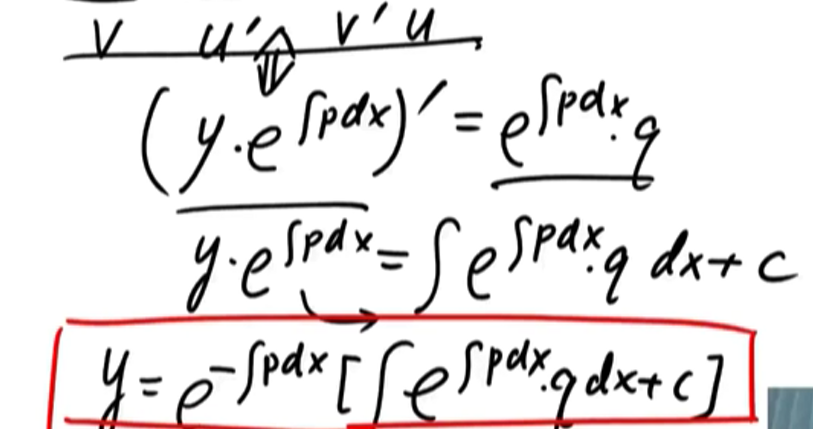 v u' v' u
(y·e^∫pdx)' = e^∫pdx·q
y·e^∫pdx = ∫e^∫pdx·q dx + c
y = e^-∫pdx [∫e^∫pdx·q dx + c]